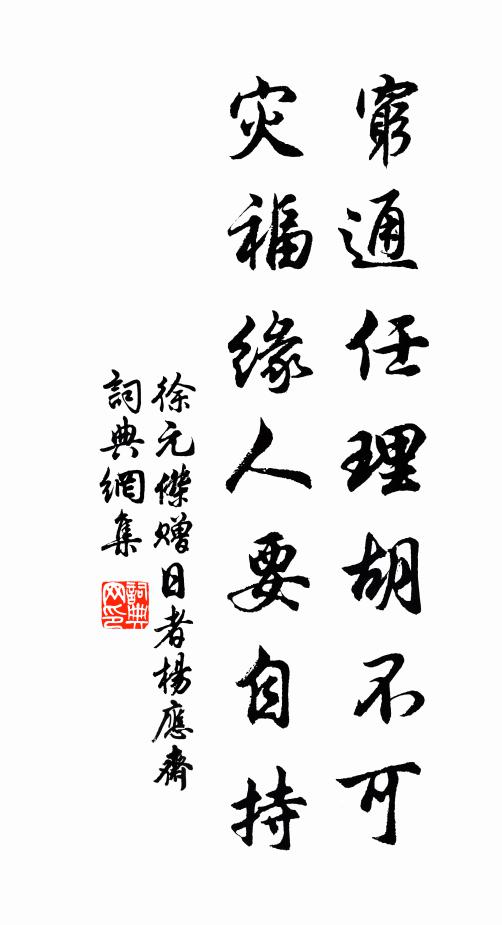 窮通任理胡不可
灾福緣人要自持
徐元傑贈日者楊應齋
詞典網集
詞典网印